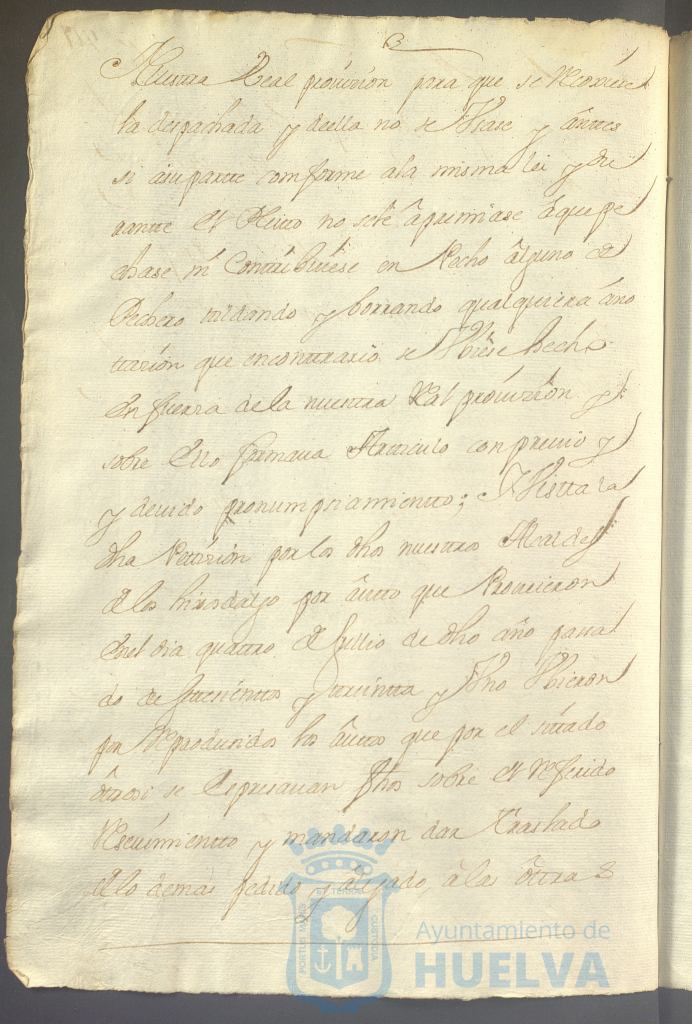 Nuestra Real provizion para que se Recoxiese
la despachada y deella no se Usase y antes
si asuparte comforme ala misma lei y Du
rante el Pleito no sele apremiase aque pe
chase ni Contribuiese en Pecho alguno de
Pechero tildando y borrando qualquiera ano
tazion que encontrario se Ubiese hecho
en fuerza de la nuestra Real provizion y
sobre ello formaua Articulo con previo y
y deuido pronumpsiamiento; I Vista la
dha Petizion por los dhos nuestros Alcaldes
de los hijosdalgo por auto que Proueieron
enel dia quatro de Jullio de dho año pasa
do de setesientos y treinta y Uno Ubieron
por Reproducidos los autos que por el sitado
otrosi se Expresauan fhos sobre el Referido
Resiuimiento y mandaron dar traslado
de lo demas pedido y alegado, a las otras
Ayuntamiento de
HUELVA
PORTUS MARIS
ET TERRAE
CUSTODIA